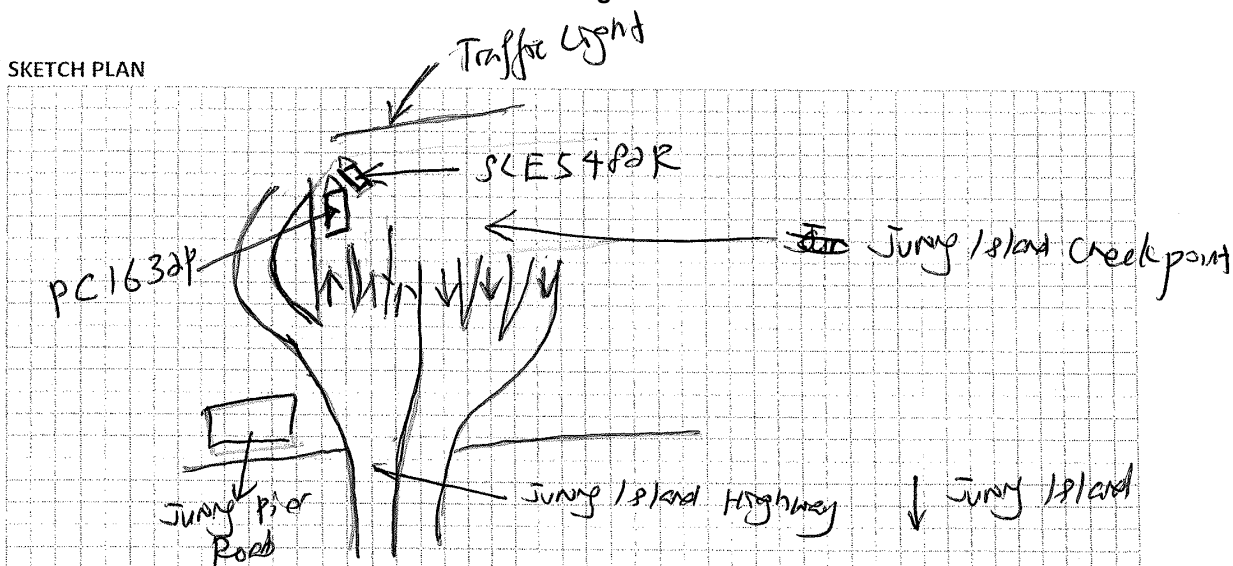 SKETCH PLAN
Traffic Light
SLE5482R
PC1632P
Jurong Island Checkpoint
Jurong Pier
Road
Jurong Island Highway
Jurong Island